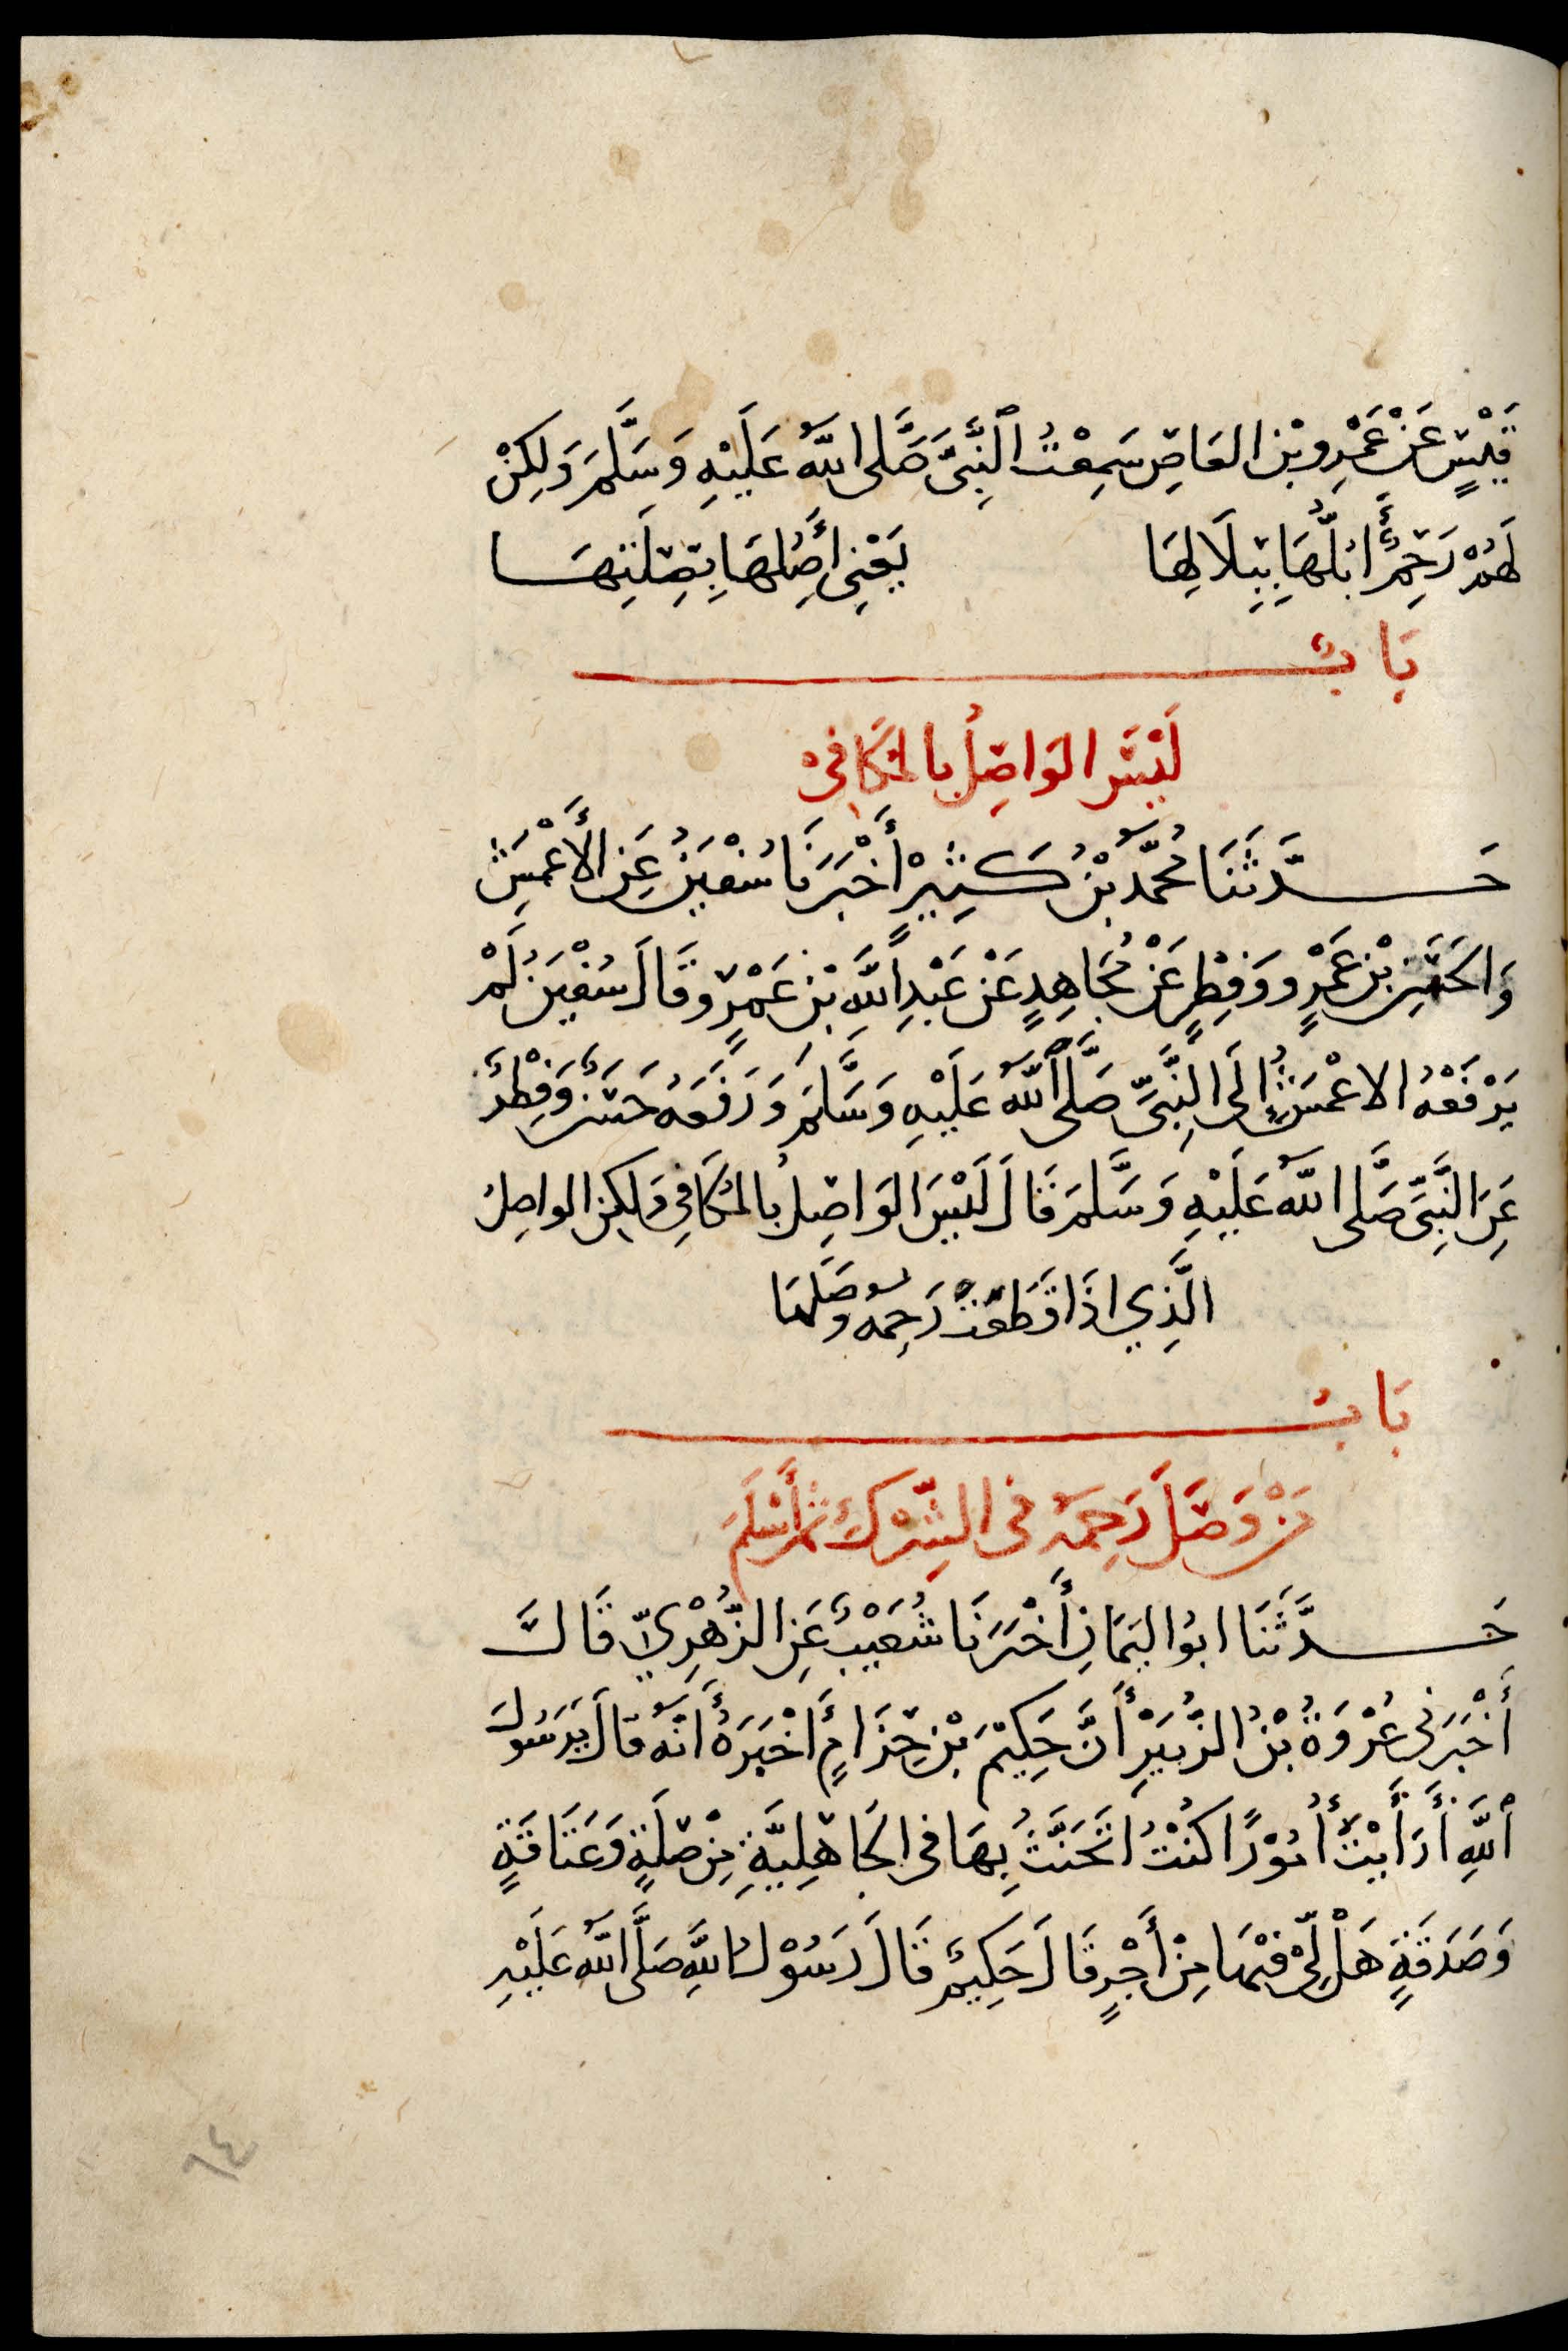 قَيْسٍ عَنْ عَمْرِو بْنِ العَاصِ سَمِعْتُ ٱلنَّبِىَّ صَلَّى اللّٰهُ عَلَيْهِ وَسَلَّمَ وَلَكِنْ
لَهُمْ رَحِمٌ أَبُلُّهَا بِبِلَالِهَا يَعْنِى أَصِلُهَا بِصِلَتِهَا
بَابُ
لَيْسَ الوَاصِلُ بِالمُكَافِئ
حَدَّثَنَا مُحَمَّدُ بْنُ كَثِيْرٍ أَخْبَرَنَا سُفْيَنُ عَنِ الأَعْمَشِ
وَالحَسَنِ بْنِ عَمْرٍو وَفِطْرٍ عَنْ مُجَاهِدٍ عَنْ عَبْدِ اللَّهِ بْنِ عَمْرٍو قَالَ سُفْيَنُ لَمْ
يَرْفَعْهُ الاعْمَشُ إِلَى النَّبِىِّ صَلَّى ٱللّٰهُ عَلَيْهِ وَسَلَّمَ وَرَفَعَهُ حَسَنٌ وَفِطْرٌ
عَنِ النَّبِىِّ صَلَّى اللّٰهُ عَلَيْهِ وَسَلَّمَ قَالَ لَيْسَ الوَاصِلُ بِالمُكَافِى وَلَكِنِ الواصِلُ
الَّذِي اذَا قَطَعَتْ رَحِمُهُ وَصَلَهَا
بَابُ
مَنْ وَصَلَ رَحِمَهُ فى الشِّرْكِ ثُمَّ أَسْلَمَ
حَدَّثَنَا ابُو اليَمَانِ أَخْبَرَنَا شُعَيْبٌ عَنِ الزُّهْرِيِّ قَالَ
أَخْبَرَنِى عُرْوَةُ بْنُ الزُّبَيْرِ أَنَّ حَكِيْمَ بْنَ حِزَامٍ أَخْبَرَهُ أَنَّهُ قَالَ يَرَسُولَ
ٱللَّهِ أَرَأَيْتَ أُمُوْرًا كُنْتُ اتَحَنَّثُ بِهَا فى الجَاهِلِيَّةِ مِنْ صِلَةٍ وَعَتَاقَةٍ
وَصَدَقَةٍ هَلْ لِىْ فِيْهَا مِنْ أَجْرٍ قَالَ حَكِيْمٌ قَالَ رَسُوْلُ اللَّهِ صَلَّى اللّٰهُ عَلَيْهِ
٦٤